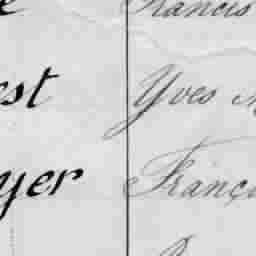 Francis
est Yves
yer Franç